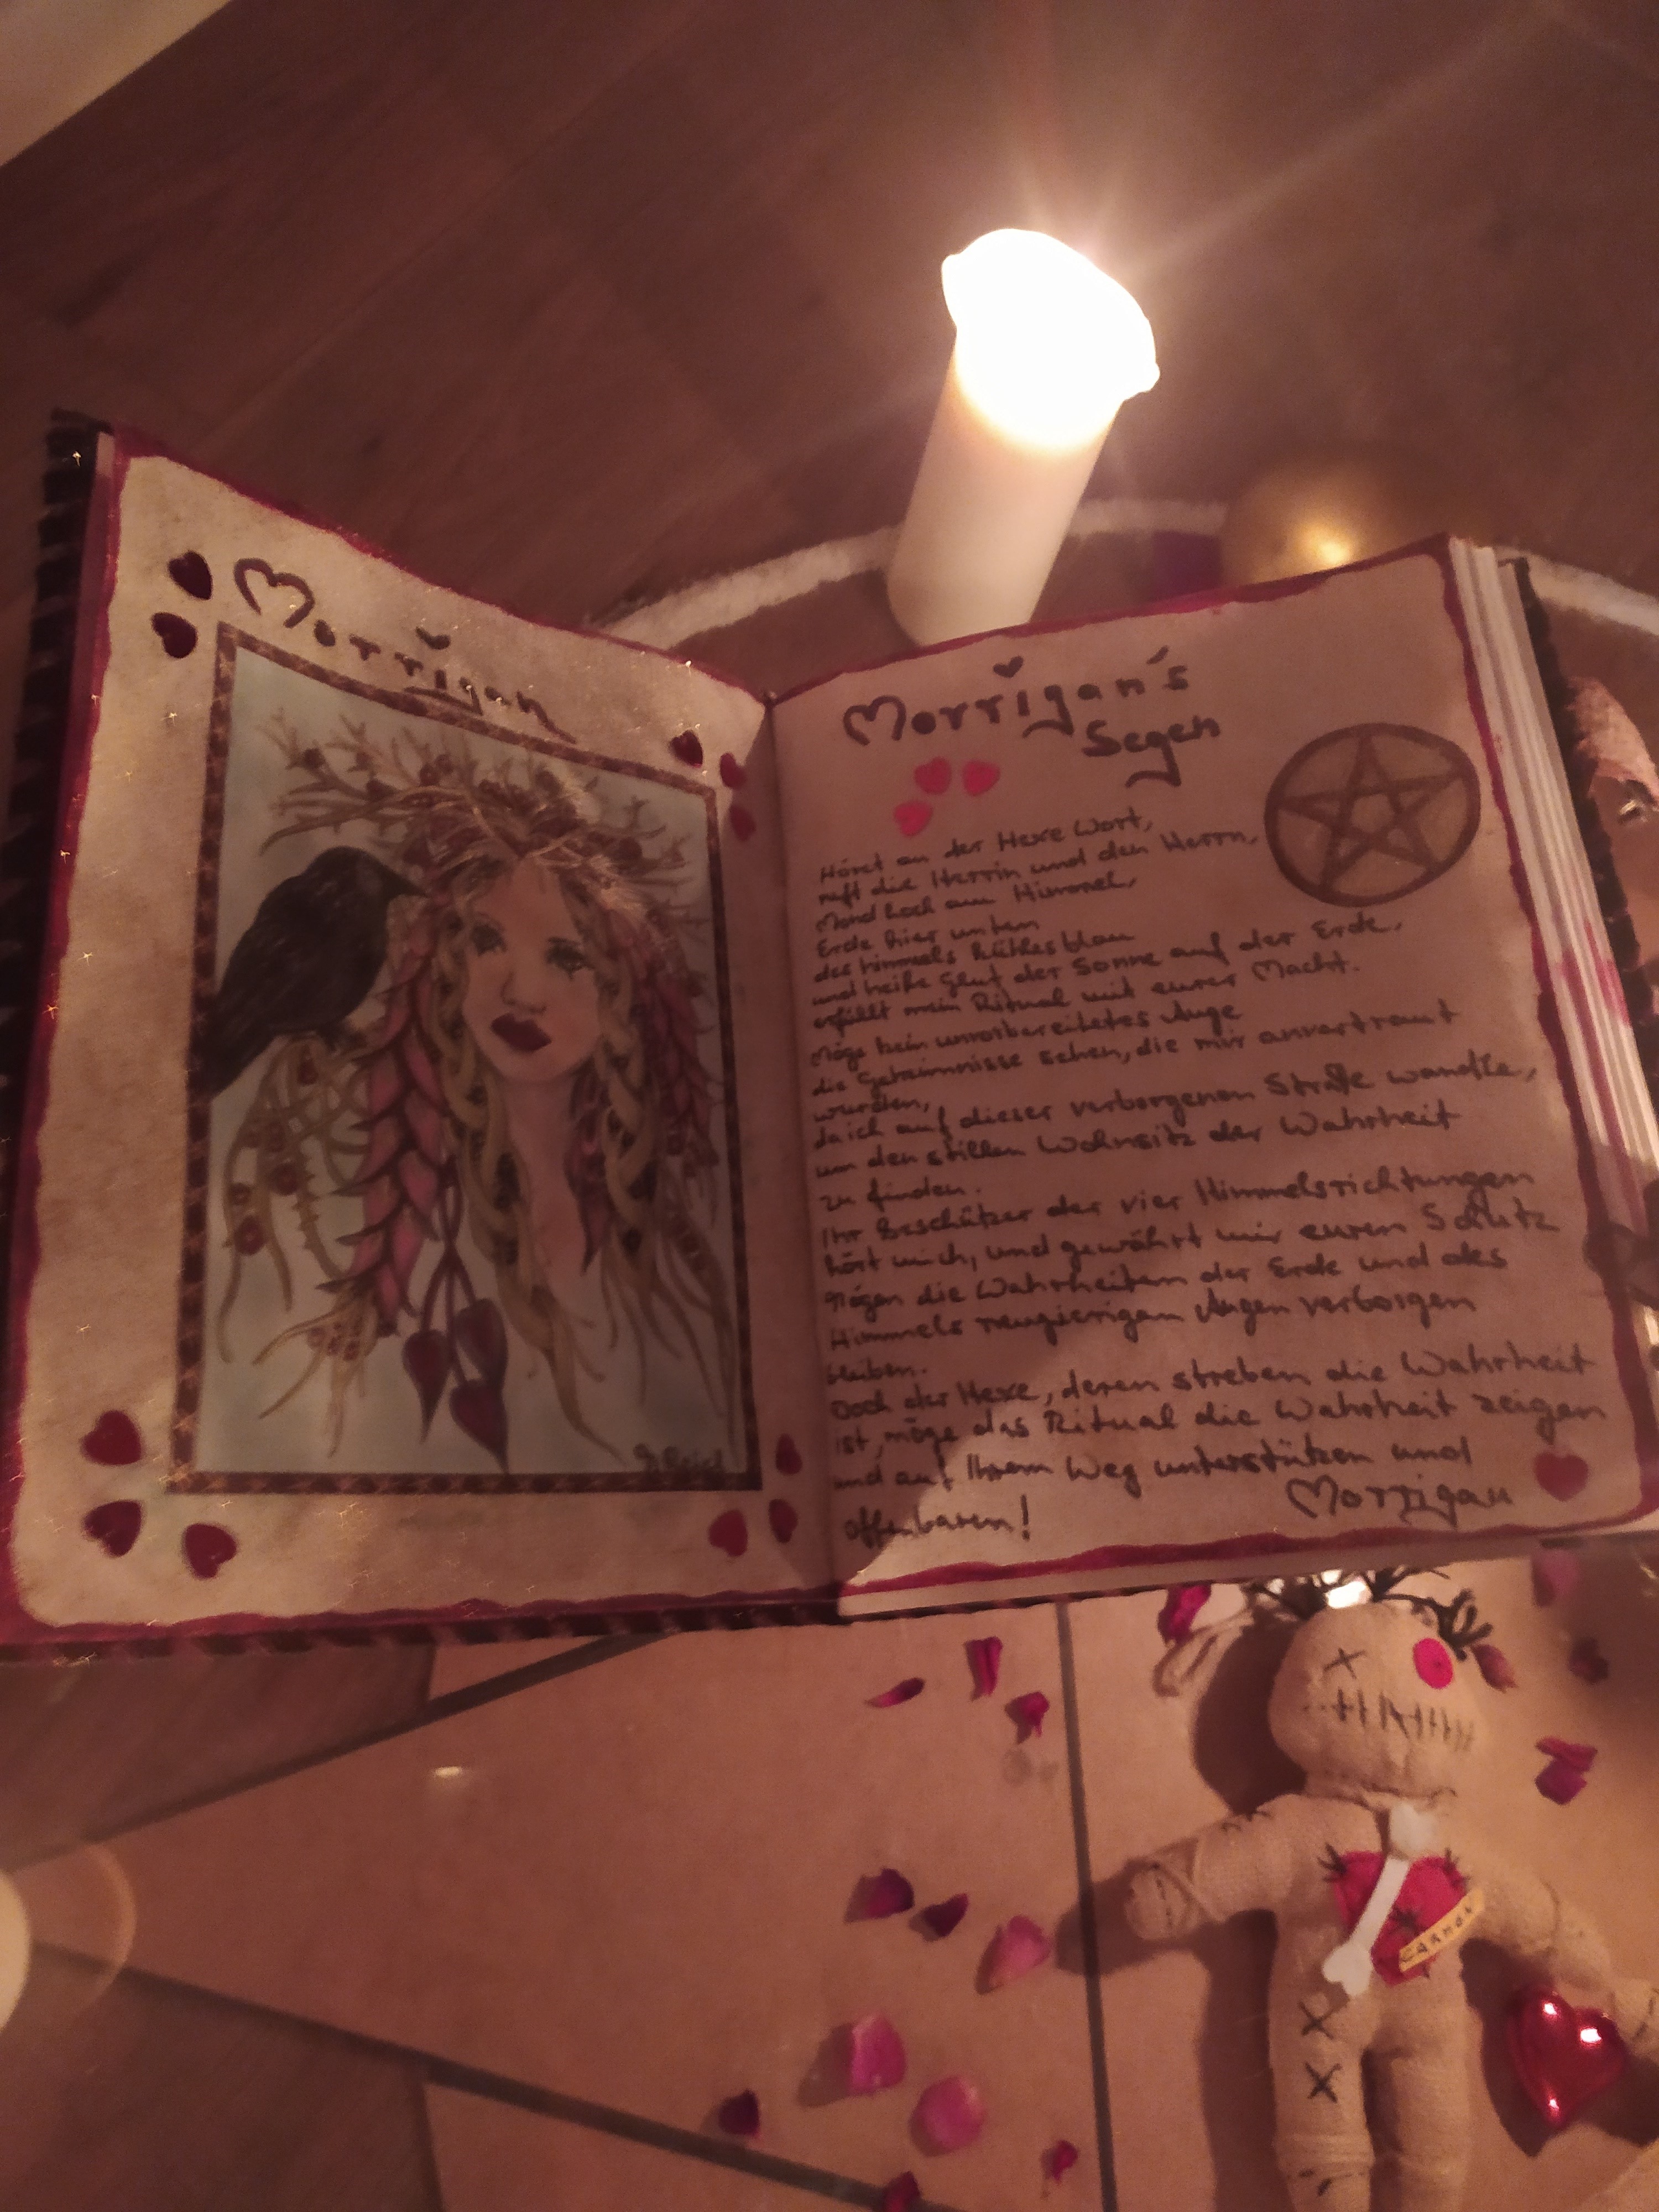 Morrigan
G. Reich
Morrigan's
Segen
Höret an der Hexe Wort,
ruft die Herrin und den Herrn,
Mond hoch am Himmel,
Erde hier unten
des himmels kühles blau
und heiße Glut der Sonne auf der Erde,
erfüllt mein Ritual mit eurer Macht.
Möge kein unvorbereitetes Auge
die Geheimnisse sehen, die mir anvertraut
wurden,
da ich auf dieser verborgenen Straße wandle,
um den stillen Wohnsitz der Wahrheit
zu finden.
Ihr Beschützer der vier Himmelsrichtungen
hört mich, und gewährt mir euren Schutz
Mögen die Wahrheiten der Erde und des
Himmels neugierigen Augen verborgen
bleiben.
Doch der Hexe, deren streben die Wahrheit
ist, möge das Ritual die Wahrheit zeigen
und auf Ihrem Weg unterstützen und
offenbaren!
Morrigan
CARMON